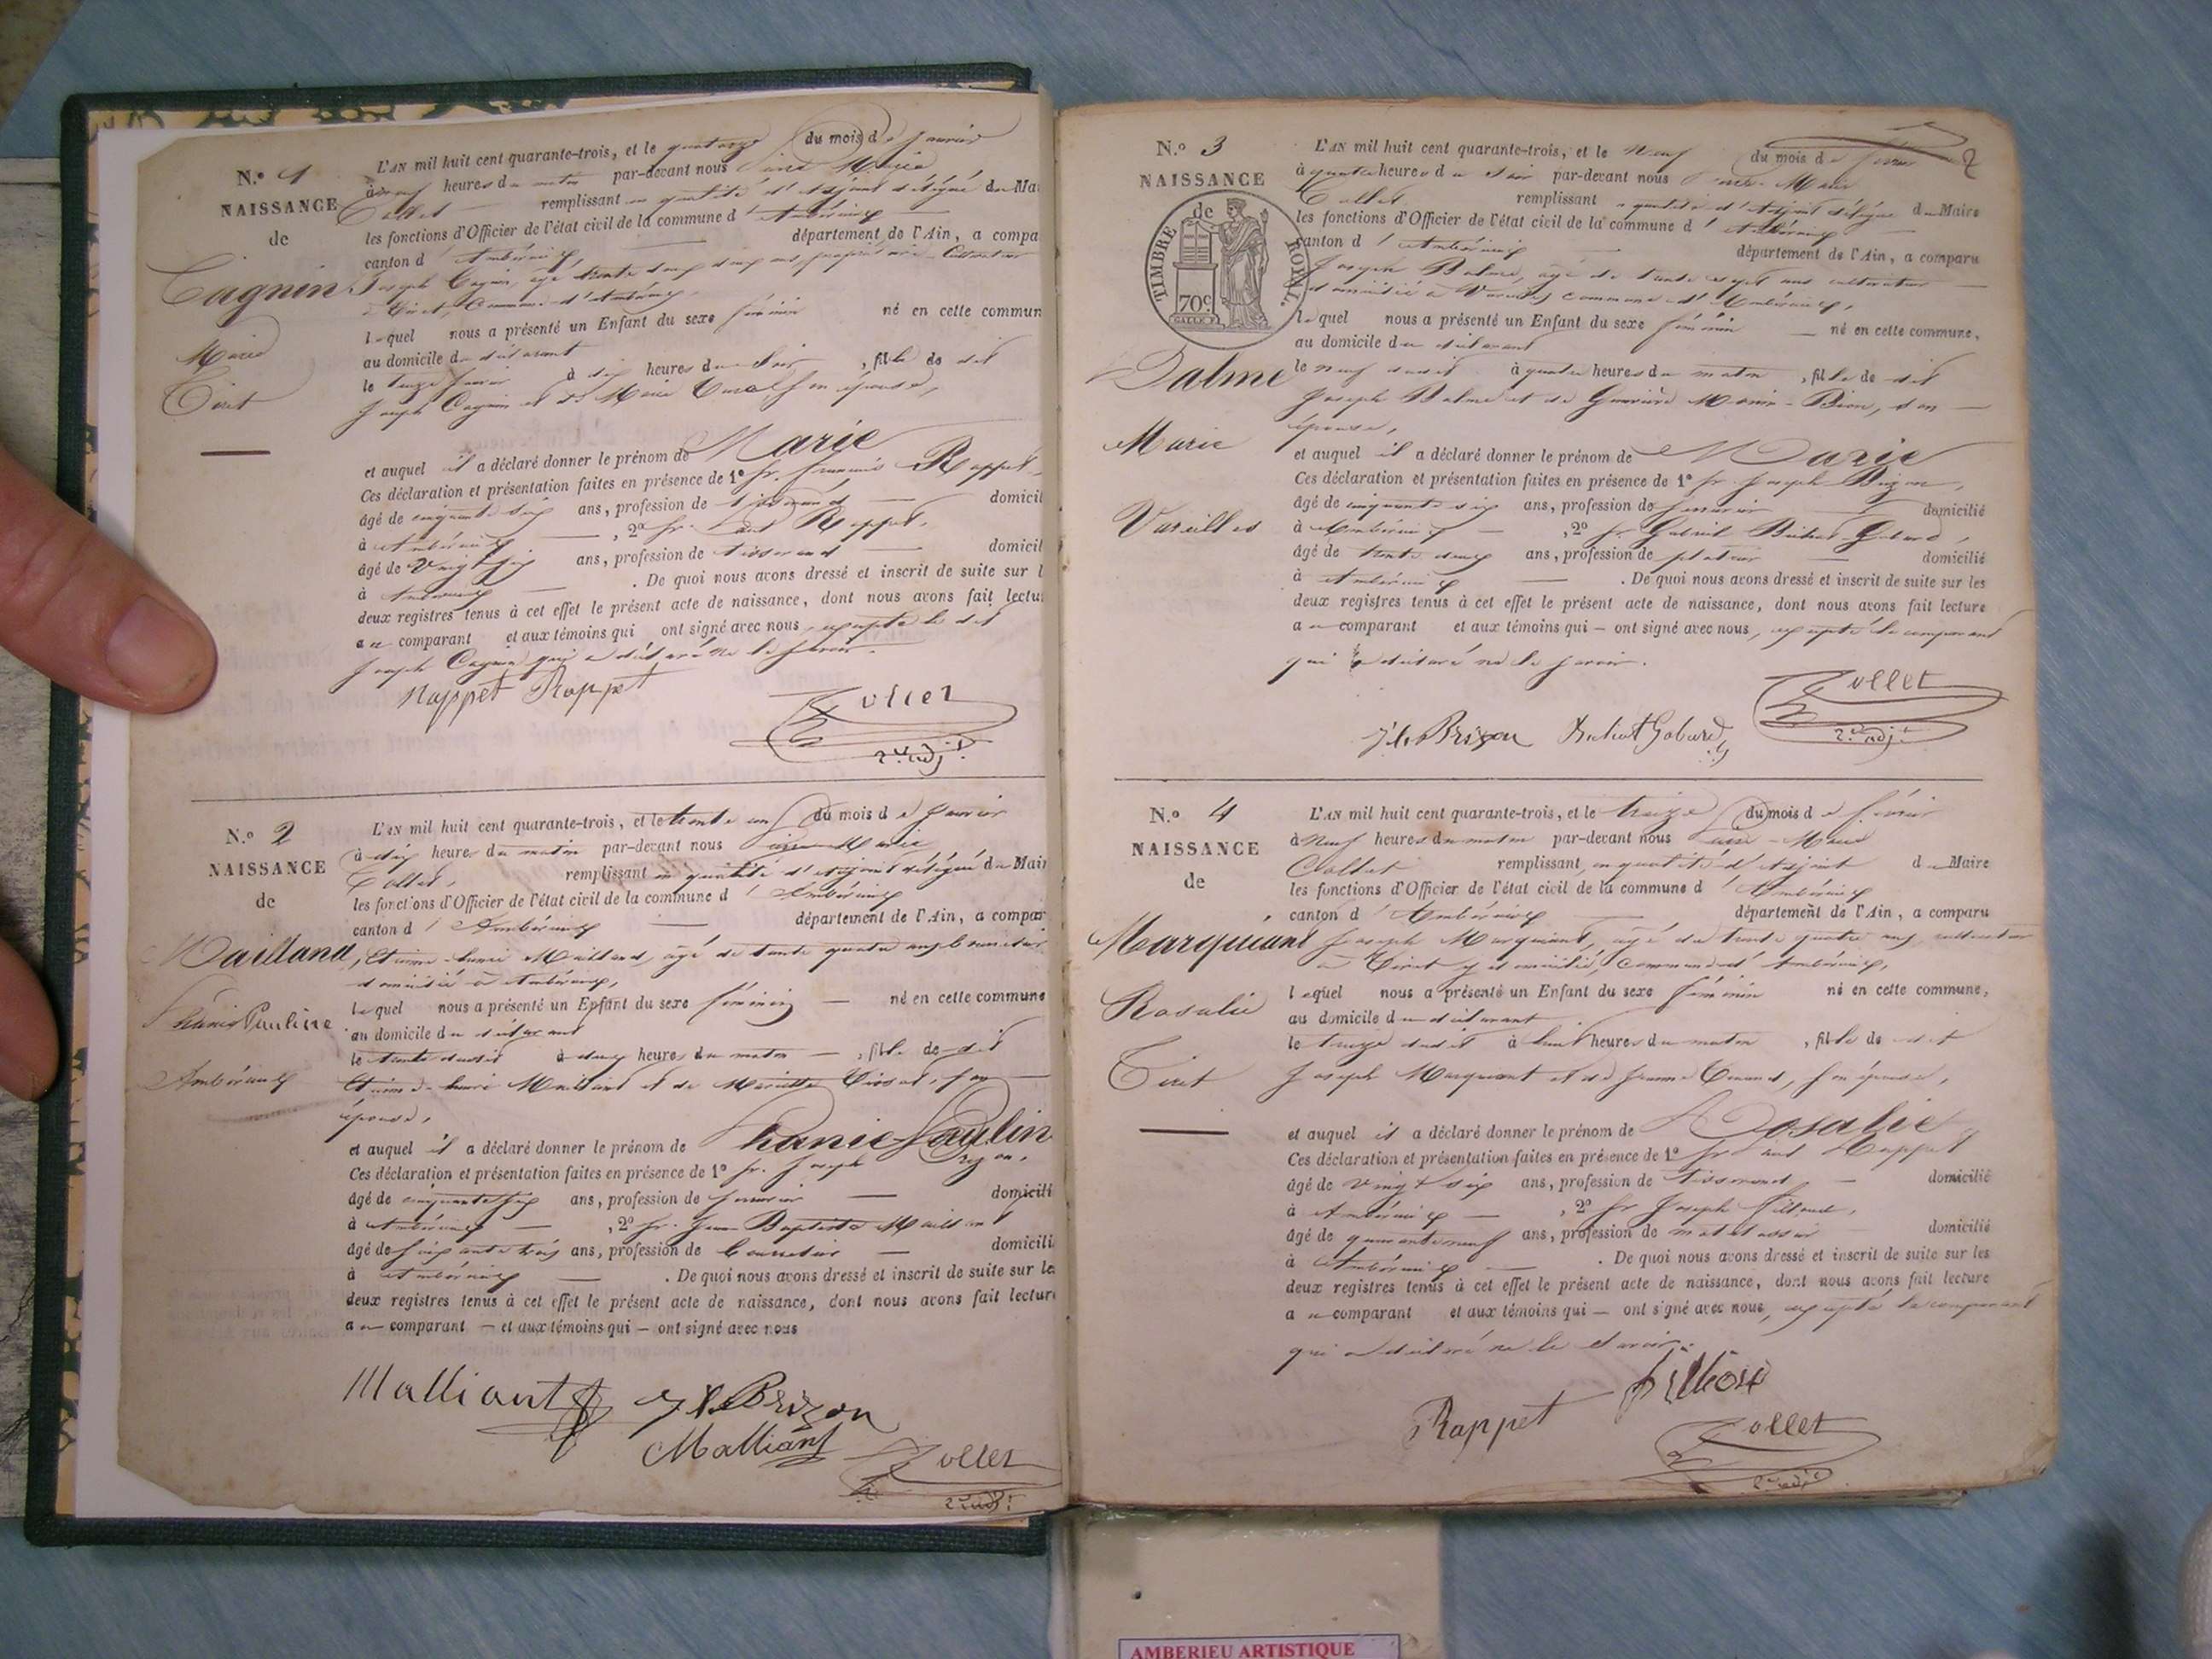 N.º 1
NAISSANCE
de
Cagnin
Marie
Tiret
L'AN mil huit cent quarante-trois, et le quatorze du mois de Janvier
à neuf heures du matin par-devant nous Pierre Marie
Collet remplissant en qualité d'Adjoint délégué du Mai
les fonctions d'Officier de l'état civil de la commune d'Ambérieux
canton d'Ambérieux, département de l'Ain, a compa
Joseph Cagnin, âgé trente ans propriétaire Cultivateur
à Tiret, Commune d'Ambérieux
lequel nous a présenté un Enfant du sexe féminin né en cette commun
au domicile du déclarant
le treize Janvier à dix heures du Soir, fille de dit
Joseph Cagnin et de Marie son épouse,
et auquel il a déclaré donner le prénom de Marie
Ces déclaration et présentation faites en présence de 1º Sr. françois Rappet,
âgé de cinquante six ans, profession de tisserand domicil
à Ambérieux, 2º Sr. Rappet,
âgé de Vingt six ans, profession de tisserand domicil
à Ambérieux. De quoi nous avons dressé et inscrit de suite sur l
deux registres tenus à cet effet le présent acte de naissance, dont nous avons fait lectu
au comparant et aux témoins qui ont signé avec nous, excepté le dit
Joseph Cagnin qui a déclaré ne le savoir.
Rappet Rappet
Collet
2e adjt
N.º 2
NAISSANCE
de
Mailland
Phanie Pauline
Ambérieux
L'AN mil huit cent quarante-trois, et le trente un du mois de Janvier
à dix heures du matin par-devant nous Pierre Marie
Collet, remplissant en qualité d'adjoint délégué du Mair
les fonctions d'Officier de l'état civil de la commune d'Ambérieux
canton d'Ambérieux département de l'Ain, a compar
Etienne-henri Mailland, âgé de trente quatre ans
domicilié à Ambérieux,
lequel nous a présenté un Enfant du sexe féminin né en cette commune
au domicile du déclarant
le trente dudit à deux heures du matin, fille de dit
Etienne-henri Mailland et de Mariette son
épouse,
et auquel il a déclaré donner le prénom de Phanie Paulin
Ces déclaration et présentation faites en présence de 1º Sr. Joseph Brizon,
âgé de cinquante six ans, profession de serrurier domicili
à Ambérieux, 2º Sr. Jean Baptiste Mailland
âgé de soixante trois ans, profession de domicili
à Ambérieux. De quoi nous avons dressé et inscrit de suite sur le
deux registres tenus à cet effet le présent acte de naissance, dont nous avons fait lectur
au comparant — et aux témoins qui — ont signé avec nous
Malliant Brizon
Malliant
Collet
2e adjt
2
N.º 3
NAISSANCE
de
TIMBRE ROYAL.
70c
Balme
Marie
Vareilles
L'AN mil huit cent quarante-trois, et le neuf du mois de février
à quatre heures du Soir par-devant nous Pierre-Marie
Collet remplissant en qualité d'Adjoint délégué du Maire
les fonctions d'Officier de l'état civil de la commune d'Ambérieux
canton d'Ambérieux département de l'Ain, a comparu
Joseph Balme, âgé de trente sept ans cultivateur
domicilié à Vareilles commune d'Ambérieux,
lequel nous a présenté un Enfant du sexe féminin né en cette commune,
au domicile du déclarant
le neuf dudit à quatre heures du matin, fille de dit
Joseph Balme et de Genevière Monin-Bion, son
épouse,
et auquel il a déclaré donner le prénom de Marie
Ces déclaration et présentation faites en présence de 1º Sr. Joseph Brizon,
âgé de cinquante six ans, profession de serrurier domicilié
à Ambérieux, 2º Sr. Gabriel Gobard,
âgé de trente deux ans, profession de platrier domicilié
à Ambérieux. De quoi nous avons dressé et inscrit de suite sur les
deux registres tenus à cet effet le présent acte de naissance, dont nous avons fait lecture
au comparant et aux témoins qui — ont signé avec nous, excepté le comparant
qui a déclaré ne le savoir.
Brizon Gobard
Collet
2e adjt
N.º 4
NAISSANCE
de
Marquiant
Rosalie
Tiret
L'AN mil huit cent quarante-trois, et le treize du mois de février
à neuf heures du matin par-devant nous Pierre-Marie
Collet remplissant, en qualité d'Adjoint du Maire
les fonctions d'Officier de l'état civil de la commune d'Ambérieux
canton d'Ambérieux département de l'Ain, a comparu
Joseph Marquiant, âgé de trente quatre ans, cultivateur
à Tiret y domicilié, commune d'Ambérieux,
lequel nous a présenté un Enfant du sexe féminin né en cette commune,
au domicile du déclarant
le treize dudit à huit heures du matin, fille de dit
Joseph Marquiant et de Jeanne son épouse,
et auquel il a déclaré donner le prénom de Rosalie
Ces déclaration et présentation faites en présence de 1º Sr Rappet
âgé de vingt six ans, profession de tisserand domicilié
à Ambérieux, 2º Sr Joseph
âgé de quarante neuf ans, profession de matelassier domicilié
à Ambérieux. De quoi nous avons dressé et inscrit de suite sur les
deux registres tenus à cet effet le présent acte de naissance, dont nous avons fait lecture
au comparant et aux témoins qui — ont signé avec nous, excepté le comparant
qui a déclaré ne le savoir.
Rappet
Collet
2e adjt
AMBERIEU ARTISTIQUE